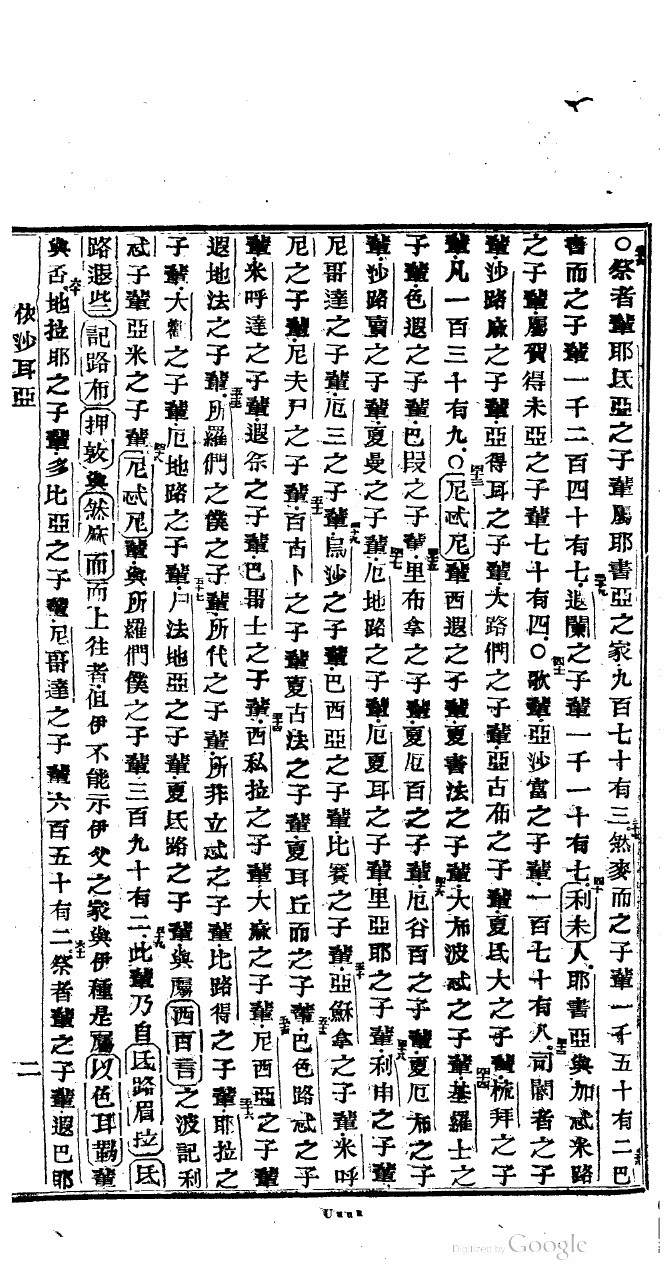 ○祭者輩耶氐亞之子輩屬耶書亞之家九百七十有三然麥而之子輩一千五十有二巴
書而之子輩一千二百四十有七遐闌之子輩一千一十有七利未人耶書亞與加忒米路
之子輩屬賀得未亞之子輩七十有四○歌輩亞沙富之子輩一百七十有八司閽者之子
輩沙路麻之子輩亞得耳之子輩大路們之子輩亞古布之子輩夏氐大之子輩梳拜之子
輩凡一百三十有九○尼忒尼輩西遐之子輩夏書法之子輩大布波忒之子輩基羅士之
子輩色遐之子輩巴段之子輩里布拿之子輩夏厄百之子輩厄谷百之子輩夏厄布之子
輩沙路賣之子輩夏曼之子輩厄地路之子輩厄夏耳之子輩里亞耶之子輩利申之子輩
尼哥達之子輩厄三之子輩烏沙之子輩巴西亞之子輩比賽之子輩亞穌拿之子輩米呼
尼之子輩尼夫尸之子輩百古卜之子輩夏古法之子輩夏耳丘而之子輩巴色路忒之子
輩米呼達之子輩遐奈之子輩巴哥士之子輩西私拉之子輩大麻之子輩尼西亞之子輩
遐地法之子輩所羅們之僕之子輩所代之子輩所非立忒之子輩比路得之子輩耶拉之
子輩大觀之子輩厄地路之子輩尸法地亞之子輩夏氐路之子輩與屬西百音之波記利
忒子輩亞米之子輩尼忒尼輩與所羅們僕之子輩三百九十有二此輩乃自氐路眉拉氐
路遐些記路布押敦與然麻而而上往者但伊不能示伊父之家與伊種是屬以色耳耶勒輩
與否地拉耶之子輩多比亞之子輩尼哥達之子輩六百五十有二祭者輩之子輩遐巴耶
依沙耳亞
二
Uuuu
Digitized by Google